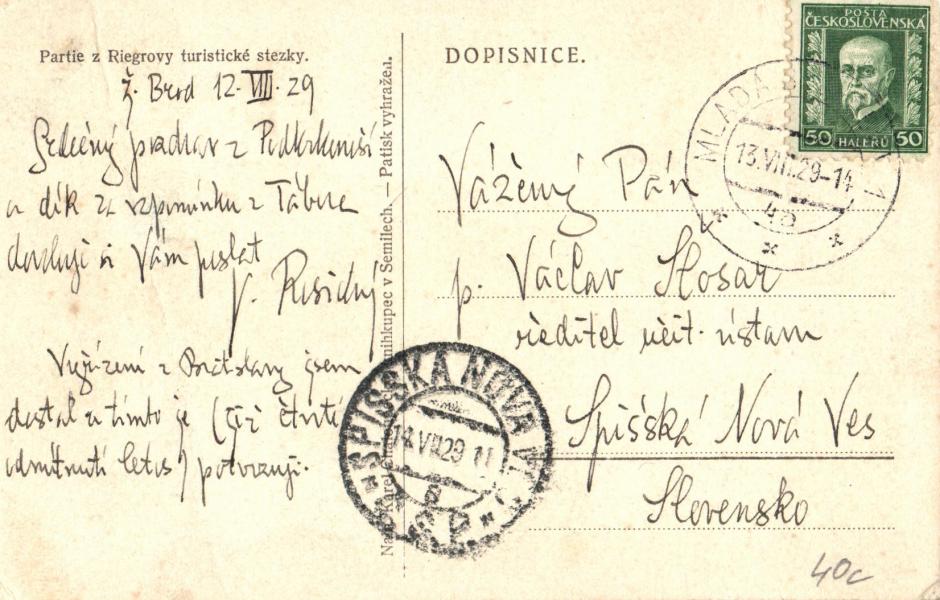 Partie z Riegrovy turistické stezky.
Ž. Brod 12. VIII. 29
Srdečný pozdrav z Podkrkonoší
a dík za vzpomínku z Tábora
dovoluji si Vám poslat
Vyřízení z Bratislavy jsem
dostal a tímto je (již čtvrté
odmítnutí letos) potvrzuji.
Patisk vyhražen.
DOPISNICE.
POŠTA
ČESKOSLOVENSKÁ
50 HALÉŘŮ 50
MLADÁ
13.VIII.29-14
Vážený Pán
p. Václav Slosar
ředitel učit. ústavu
Spišská Nová Ves
Slovensko
SPIŠSKÁ NOVÁ VES
14.VIII.29 11
40c